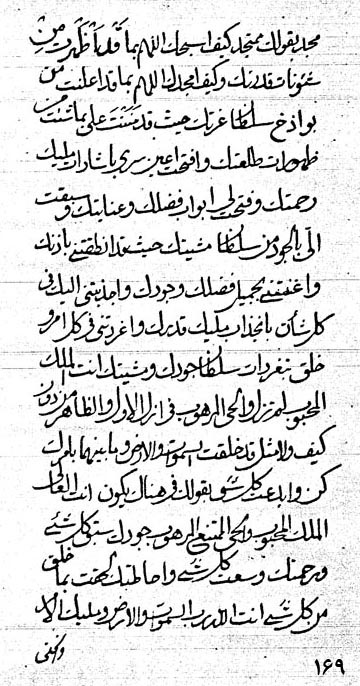 محد بقولك ممتحد كيف اسبحك اللهم بما قد اظهرت من
شئونات قدرتك وكيف امجدك اللهم بما قد اعلنت من
بواذخ سلطان عزتك حيث قد مننت علي بما تمنت من
ظهورات طلعتك وافتحت اعين سري باشارات مليك
رحمتك وفتحت لي ابواب فضلك وعنايتك وسبقت
الي بالجود من سلطان مشيتك حيث قد انطقتني باذنك
واغنيتني بجميل فضلك وجودك واجذبتني اليك في
كل شان بانجذاب مليك قدرك واغردتني في كل امر و
خلق بتغردات سلطان جودك ومشيتك انت الملك
المحبوب لم تزل والحي المرهوب في ازل الاول والظاهر من دون
كيف ولا مثل قد خلقت السموات والارض وما بينهما بامرك
كن وابدعت كل شيء بقولك فهنالك يكون انت العدل
الملك المحبوب والحي الممتنع المرهوب جودك سبق كل شيء
ورحمتك وسعت كل شيء واحاطتك بما خلق
من كل شيء انت الله رب السموات والارض ومليك الا
والخلق
١٦٩